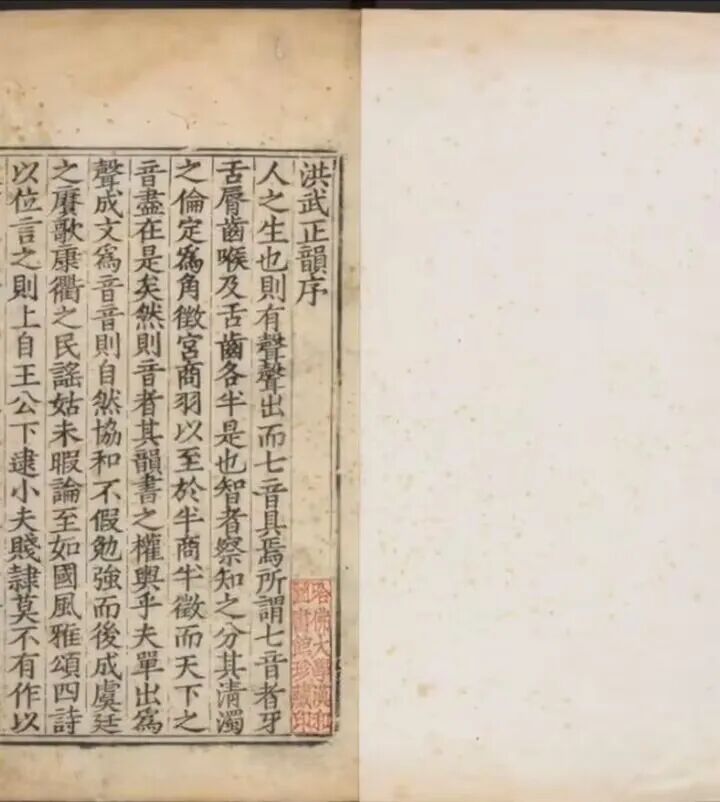 洪武正韻序
人之生也則有聲聲出而七音具焉所謂七音者牙
舌脣齒喉及舌齒各半是也智者察知之分其清濁
之倫定爲角徵宮商羽以至於半商半徵而天下之
音盡在是矣然則音者其韻書之權輿乎夫單出爲
聲成文爲音音則自然協和不假勉強而後成虞廷
之賡歌康衢之民謠姑未暇論至如國風雅頌四詩
以位言之則上自王公下逮小夫賤隸莫不有作以
哈佛大學漢和
圖書館珍藏印